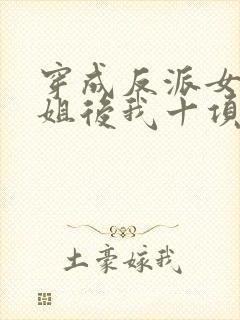 穿成反派女
姐後我十項
土豪嫁我